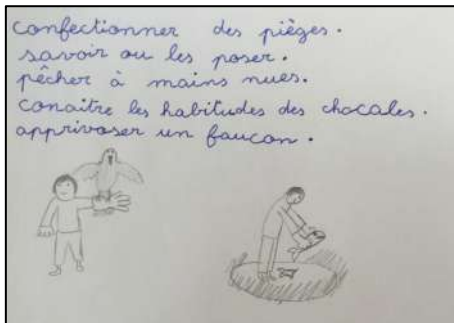 confectionner des pièges.
savoir ou les poser.
pêcher à mains nues.
conaitre les habitudes des chocales.
apprivoser un faucon.